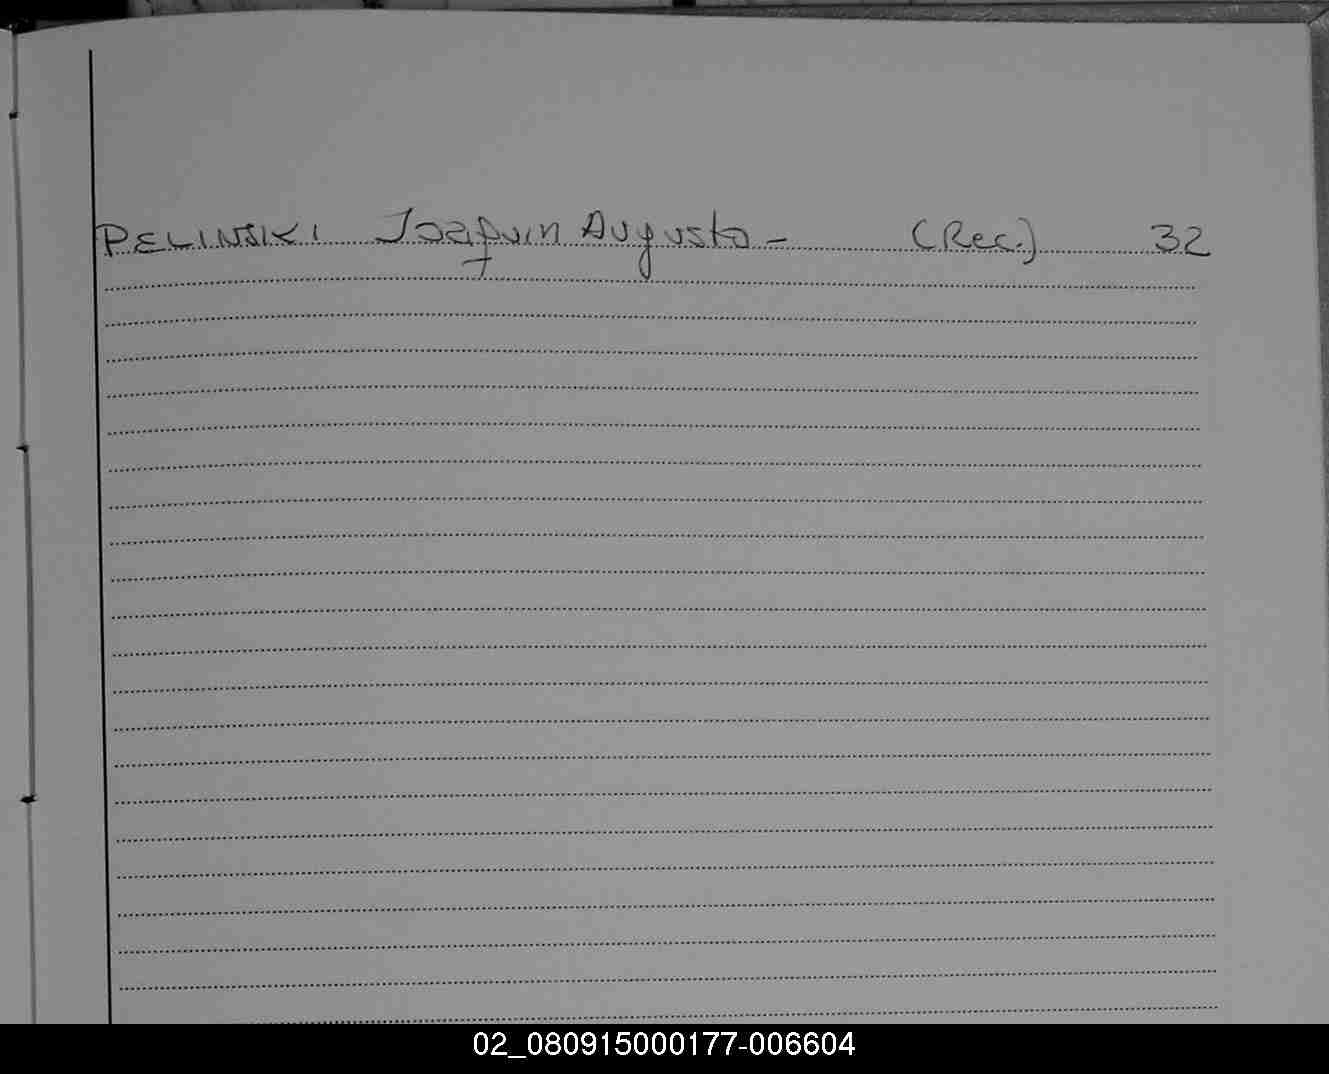 PELINSKI Joaquin Augusto - (Rec.) 32
02_080915000177-006604